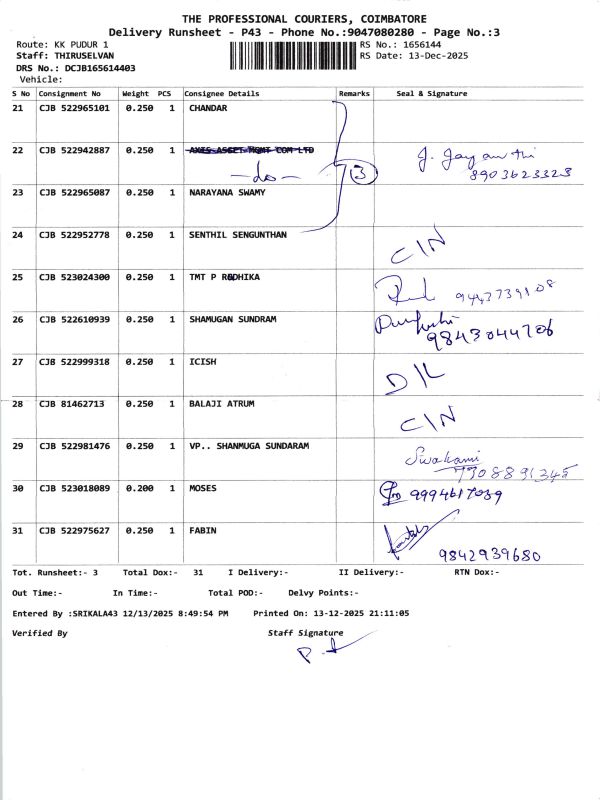 THE PROFESSIONAL COURIERS, COIMBATORE
Delivery Runsheet - P43 - Phone No.:9047080280 - Page No.:3
Route: KK PUDUR 1 RS No.: 1656144
Staff: THIRUSELVAN RS Date: 13-Dec-2025
DRS No.: DCJB165614403
Vehicle:
S No Consignment No Weight PCS Consignee Details Remarks Seal & Signature
21 CJB 522965101 0.250 1 CHANDAR
22 CJB 522942887 0.250 1 AXIS ASSET MGMT COM LTD J. Jayanthi
-do- 3 8903623323
23 CJB 522965087 0.250 1 NARAYANA SWAMY
24 CJB 522952778 0.250 1 SENTHIL SENGUNTHAN C/N
25 CJB 523024300 0.250 1 TMT P RADHIKA
26 CJB 522610939 0.250 1 SHAMUGAN SUNDRAM
9843044706
27 CJB 522999318 0.250 1 ICISH D/L
28 CJB 81462713 0.250 1 BALAJI ATRUM C/N
29 CJB 522981476 0.250 1 VP.. SHANMUGA SUNDARAM
7708891345
30 CJB 523018089 0.200 1 MOSES 9994617039
31 CJB 522975627 0.250 1 FABIN
9842939680
Tot. Runsheet:- 3 Total Dox:- 31 I Delivery:- II Delivery:- RTN Dox:-
Out Time:- In Time:- Total POD:- Delvy Points:-
Entered By :SRIKALA43 12/13/2025 8:49:54 PM Printed On: 13-12-2025 21:11:05
Verified By Staff Signature